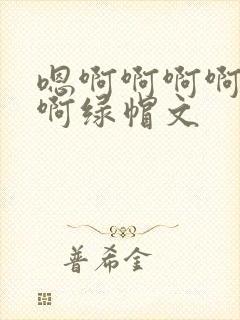 嗯啊啊啊啊
啊绿帽文
普希金